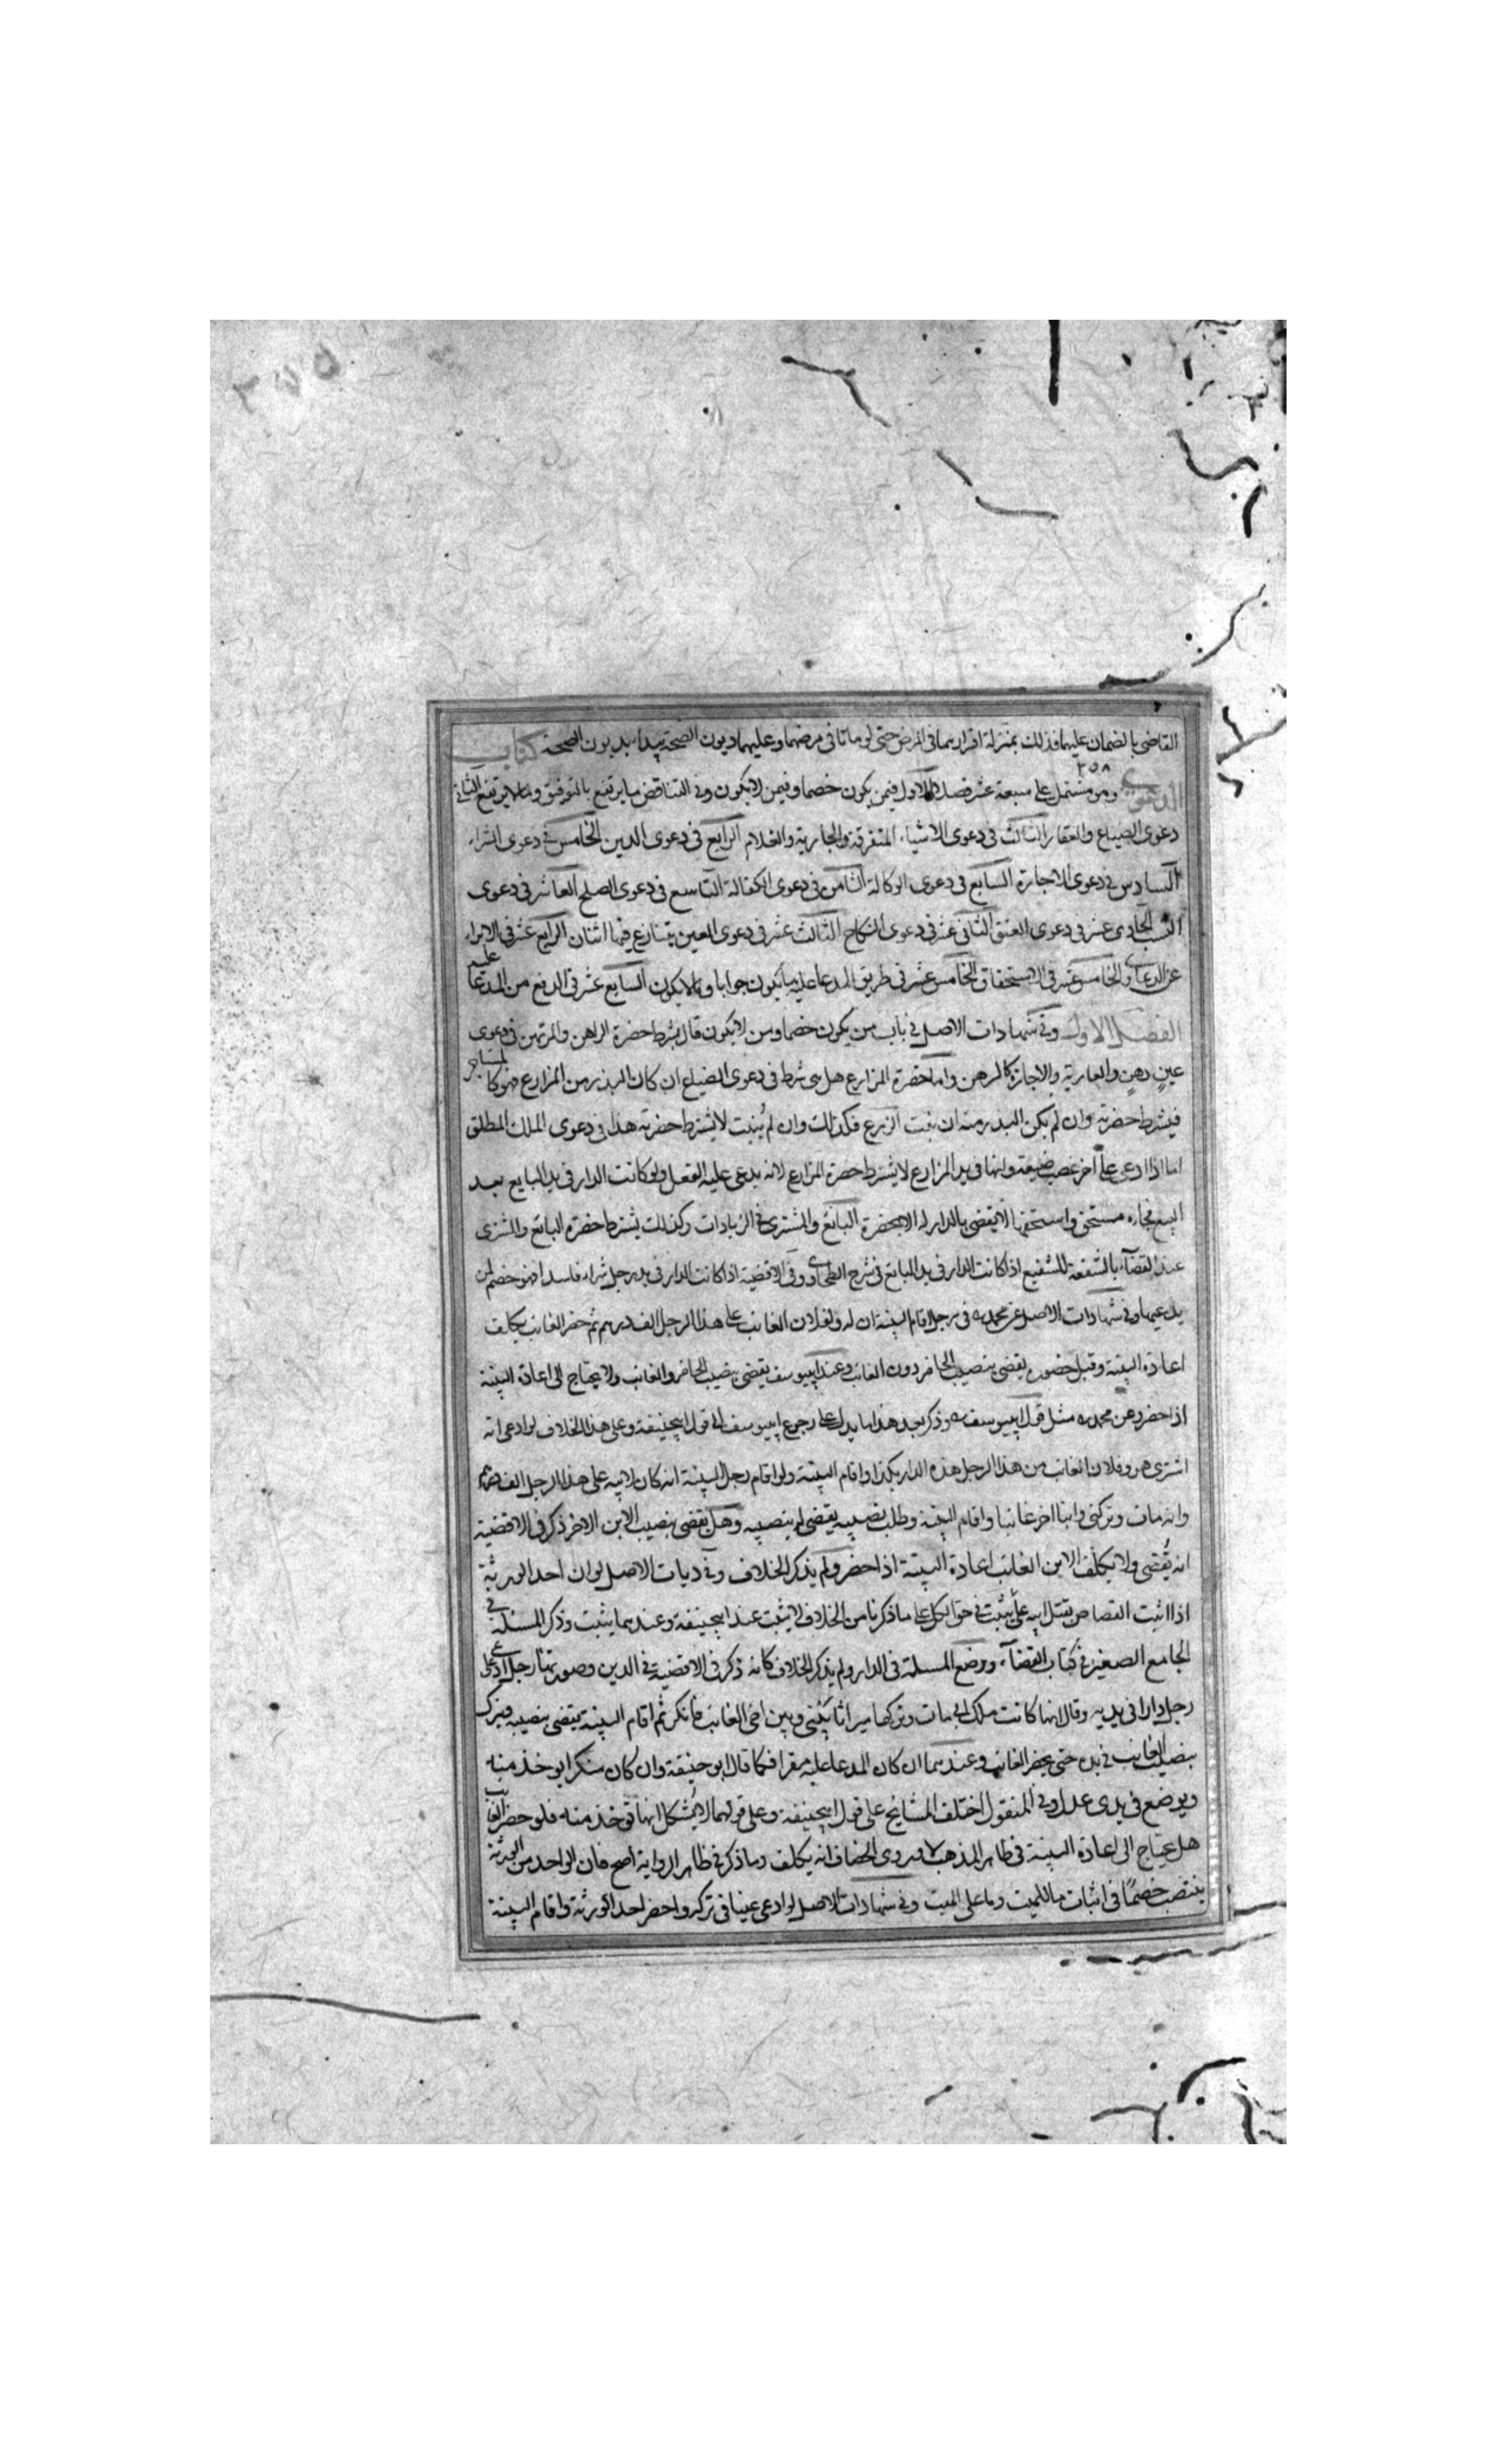 القاضي بالضمان عليهما فذلك بمنزلة اقرارهما في المرض حتى لو ماتا في مرضهما وعليهما ديون الصحة يبداء بديون الصحة كتاب
الدعوى وهو مشتمل على سبعة عشر فصلا الاول فيمن يكون خصما وفيمن لا يكون وفي التناقض ما يرتفع بالتوفيق وما لا يرتفع الثاني
٢٥٨
دعوى الضياع والعقار الثالث في دعوى الاشياء المتفرقة والجارية والغلام الرابع في دعوى الدين الخامس في دعوى الشراء
السادس في دعوى الاجارة السابع في دعوى الوكالة الثامن في دعوى الكفالة التاسع في دعوى الصلح العاشر في دعوى
النسب الحادي عشر في دعوى العتق الثاني عشر في دعوى النكاح الثالث عشر في دعوى العين يتنازع فيها اثنان الرابع عشر في الابراء
عن الدعاوى والخامس عشر في الاستحقاق الخامس عشر في طريق المدعا عليه ما يكون جوابا وما لا يكون السابع عشر في الدفع من المدعا عليه
الفصل الاول وفي شهادات الاصل في باب من يكون خصما ومن لا يكون قال يشترط حضرة الراهن والمرتهن في دعوى
عين رهن والعارية والاجازة كالرهن واما حضرة المزارع هل هي شرط في دعوى الضياع ان كان البذر من المزارع فهو كالمستاجر
فيشترط حضرته وان لم يكن البدر منه ان نبت الزرع فكذلك وان لم ينبت لا يشترط حضرته هذا في دعوى الملك المطلق
اما اذا ادعى على اخر غصب ضيعته وانها في يد المزارع لا يشترط حضرة المزارع لانه يدعى عليه الفعل ولو كانت الدار في يد البايع بعد
البيع فجاءه مستحق واستحقها لا يقضى بالدار له الا بحضرة البائع والمشترى في الزيادات وكذلك يشترط حضرة البائع والمشترى
عند القضاء بالشفعة للشفيع اذا كانت الدار في يد البائع في شرح الطحاوى وفي الاقضية اذا كانت الدار في يد رجل شراء فاسدا فهو خصم لمن
يدعيها وفي شهادات الاصل عن محمد في رجل اقام البينة ان له ولفلان الغائب على هذا الرجل الف درهم ثم حضر الغائب يكلف
اعادة البينة وقبل حضوره يقضى بنصيب الحاضر دون الغائب وعند ابيوسف يقضى بنصيب الحاضر والغائب ولا يحتاج الى اعادة البينة
اذا حضر وعن محمد مثل قول ابيوسف وذكر بعد هذا ما يدل على رجوع ابيوسف الى قول ابيحنيفة وعلى هذا الخلاف لو ادعى انه
اشترى هو وفلان الغائب من هذا الرجل هذه الدار بكذا واقام البينة ولو اقام رجل البينة انه كان لابيه على هذا الرجل الف درهم
وانه مات وتركنى وابنا اخر غائبا واقام البينة وطلب نصيبه يقضى له بنصيبه وهل يقضى بنصيب الابن الاخر ذكر في الاقضية
انه يقضى ولا يكلف الابن الغائب اعادة البينة اذا حضر ولم يذكر الخلاف وفي ديات الاصل لو ان احد الورثة
اذا اثبت القصاص بقتل ابيه على يثبت في حق الكل على ما ذكرنا من الخلاف لا يثبت عند ابيحنيفة وعندهما يثبت وذكر المسئلة في
الجامع الصغير في كتاب القضاء ووضع المسئلة في الدار ولم يذكر الخلاف كانه ذكر في الاقضية في الدين وصورتها رجل ادعى على
رجل دارا في يديه وقال انها كانت ملك ابى مات وتركها ميراثا بينى وبين اخى الغائب فانكر ثم اقام البينة يقضى بنصيبه ويترك
بنصيب الغائب في يده حتى يحضر الغائب وعندهما ان كان المدعا عليه مقرا فكما قال ابو حنيفة وان كان منكرا يوخذ منه
ويوضع في يدى عدل وفي المنقول اختلف المشائخ على قول ابيحنيفة وعلى قولهما لا يشكل انها توخذ منه فلو حضر الغائب
هل يحتاج الى اعادة البينة في ظاهر المذهب لا وروى الخصاف انه يكلف وما ذكر في ظاهر الرواية اصح فان الواحد من الورثة
ينتصب خصما في اثبات ما للميت وما على الميت وفي شهادات الاصل لو ادعى عينا في تركه واحضر احد الورثة واقام البينة